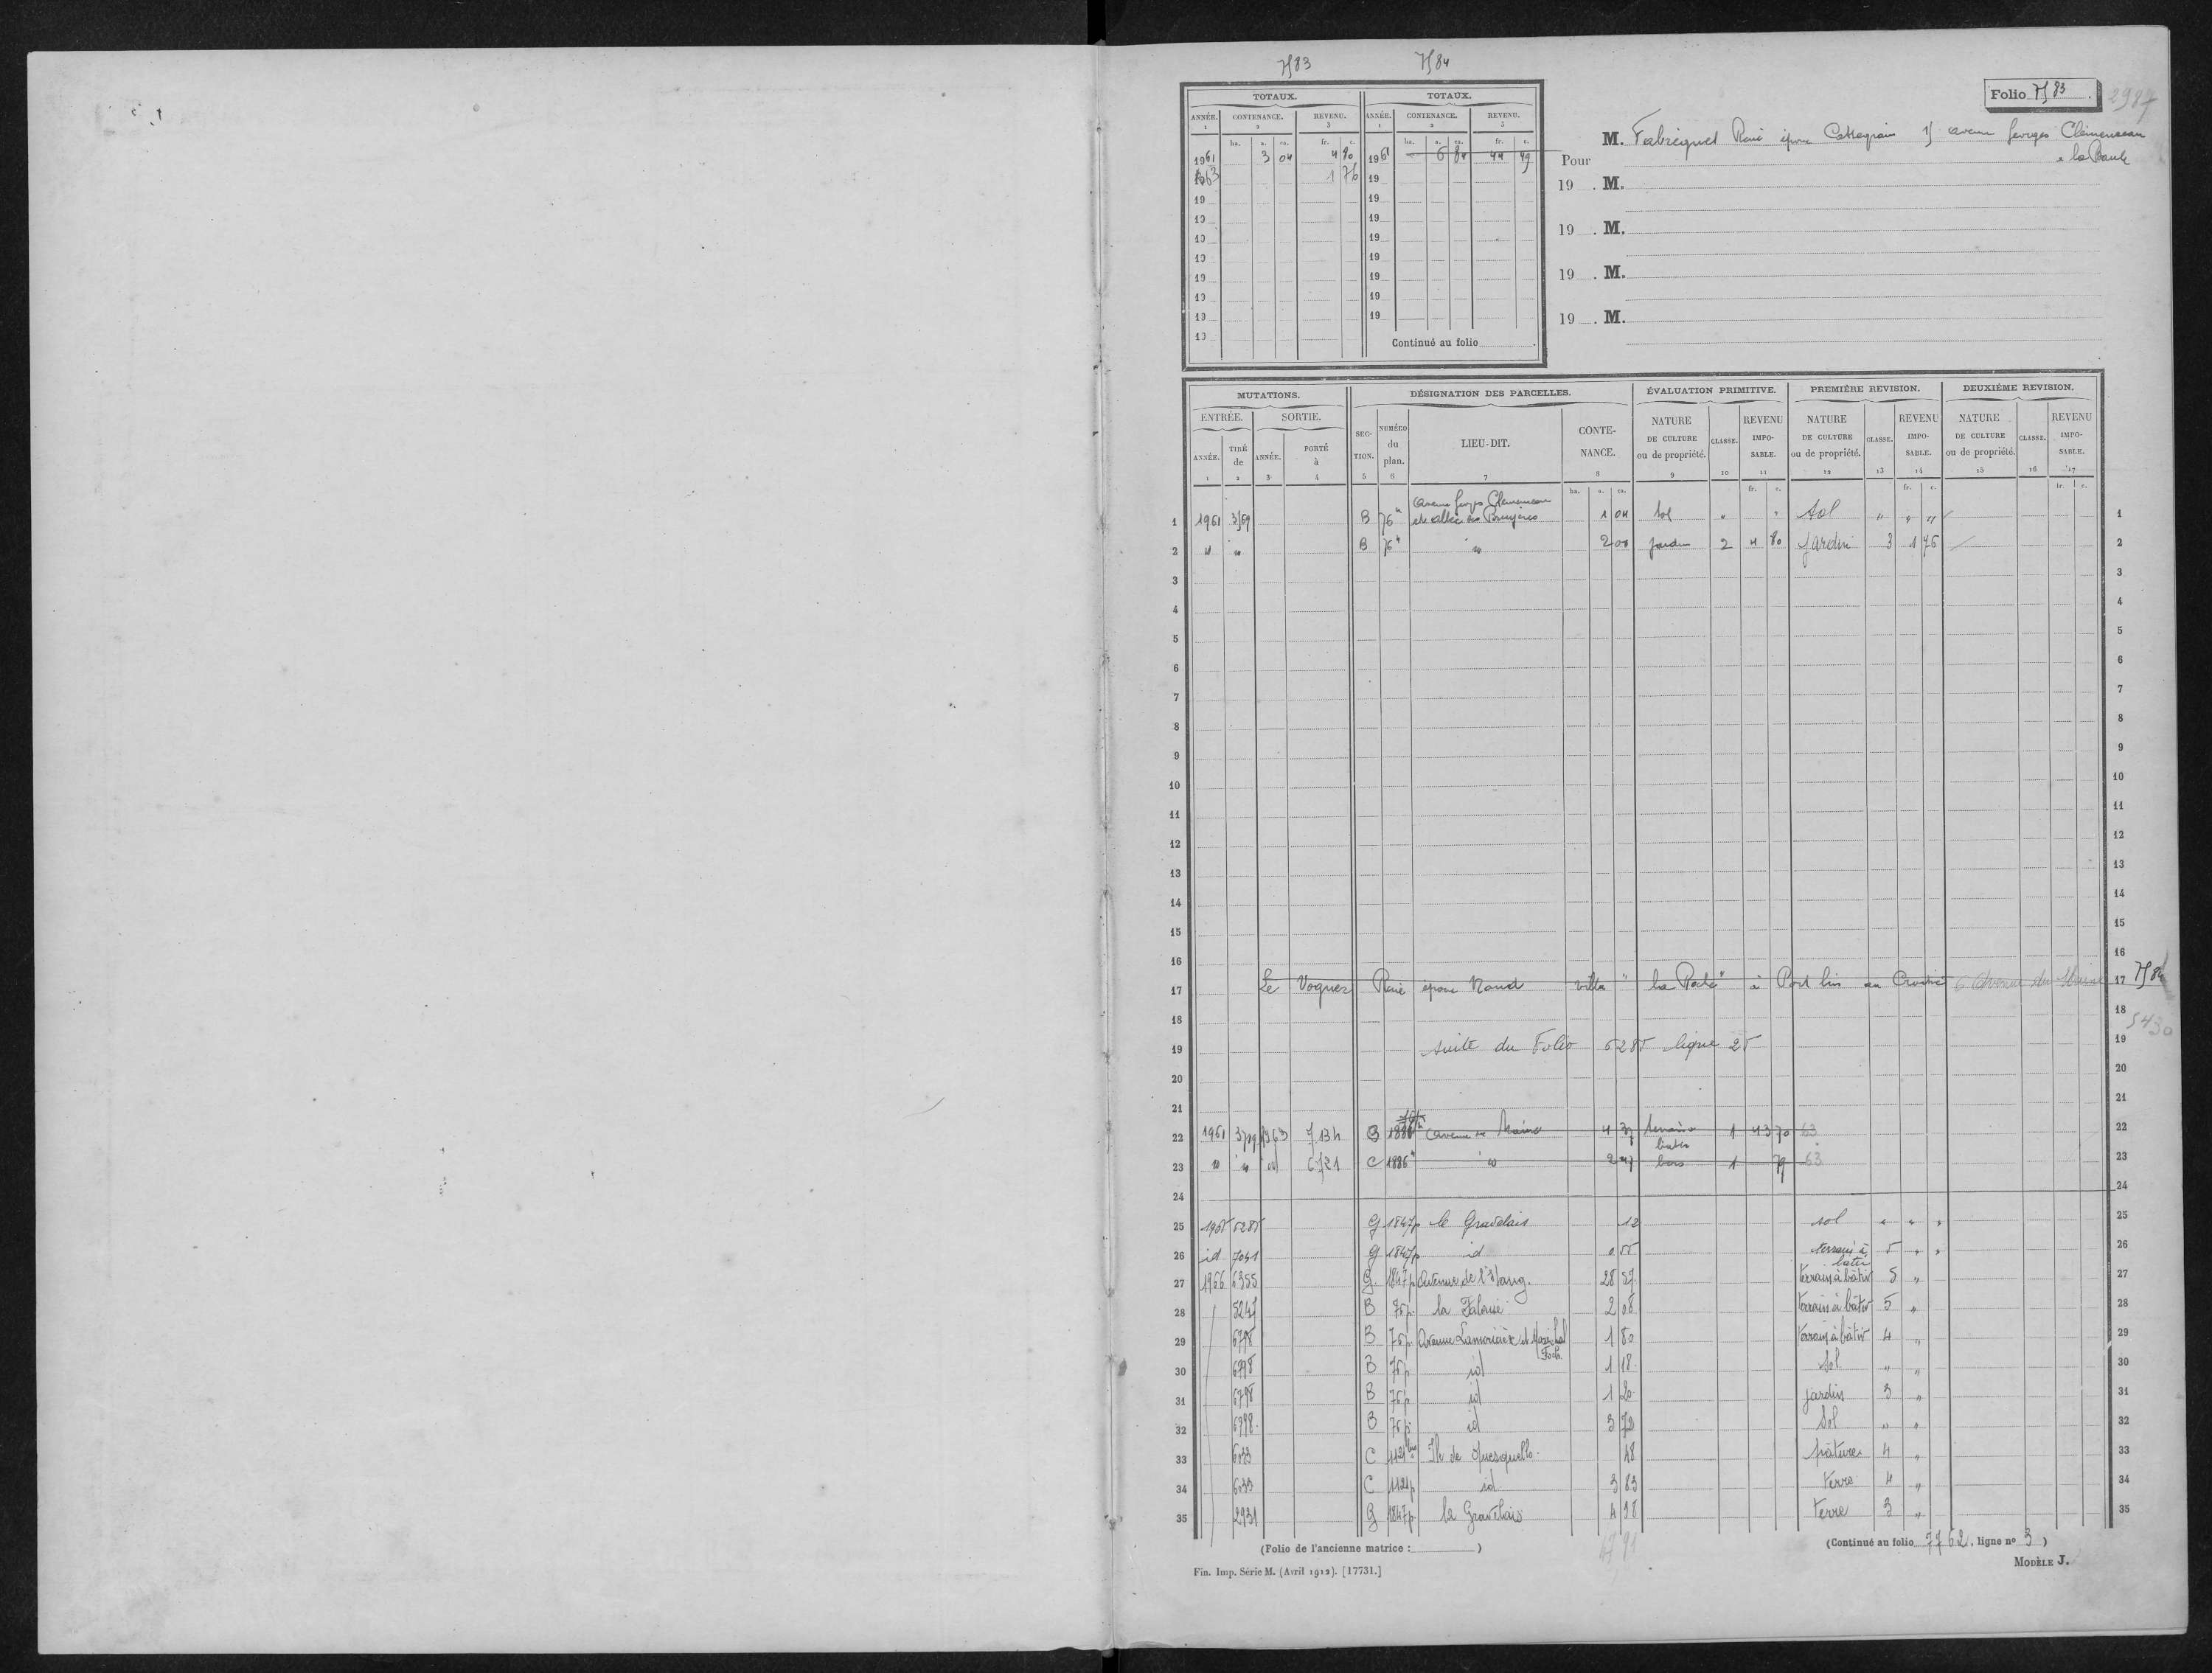 7583 7584
Folio 7583 . 2987
TOTAUX. TOTAUX.
ANNÉE. CONTENANCE. REVENU. ANNÉE. CONTENANCE. REVENU.
1 2 3 1 2 3
ha. a. ca. fr. c. ha. a. ca. fr. c.
1961 3 04 4 80 1961 6 84 44 49
1963 1 76 19
19 19
19 19
19 19
19 19
19 19
19 19
19 19
19
Continué au folio
Pour M. René épouse avenue Georges Clemenceau
la Baule
19 . M.
19 . M.
19 . M.
19 . M.
MUTATIONS. DÉSIGNATION DES PARCELLES. ÉVALUATION PRIMITIVE. PREMIÈRE REVISION. DEUXIÈME REVISION.
ENTRÉE. SORTIE. SEC-TION. NUMÉRO du plan. LIEU-DIT. CONTE-NANCE. NATURE DE CULTURE ou de propriété. CLASSE. REVENU IMPO-SABLE. NATURE DE CULTURE ou de propriété. CLASSE. REVENU IMPO-SABLE. NATURE DE CULTURE ou de propriété. CLASSE. REVENU IMPO-SABLE.
ANNÉE. TIRÉ de ANNÉE. PORTÉ à
1 2 3 4 5 6 7 8 9 10 11 12 13 14 15 16 17
ha. a. ca. fr. c. fr. c. fr. c.
avenue Georges Clemenceau
1 1961 B 76 et allée des Bruyères 1 04 Sol " " Sol " " " 1
2 " " B 76 " 2 00 jardin 2 4 80 jardin 3 1 76 2
3 3
4 4
5 5
6 6
7 7
8 8
9 9
10 10
11 11
12 12
13 13
14 14
15 15
16 16
17 Le Voguer René épouse villa " la " à Port Lin au Croisic 6 avenue du 17 7584
18 18 5430
19 suite du Folio 6285 ligne 25 19
20 20
21 21
22 1961 3709 1963 7134 1886 avenue 4 37 terrain à bâtir 1 43 70 63 22
23 " " " 6721 C 1886 " 2 47 bois 1 79 63 23
24 24
25 1965 6285 G 1847p le Gravelais 12 sol " " " 25
26 id 7041 G 1847p id 0 55 terrain à bâtir 5 " " 26
27 1966 6355 G. 1847p Avenue de l'Etang. 28 57 terrain à bâtir 5 " 27
28 5247 B 76p. la Falaise 2 08 terrain à bâtir 5 " 28
29 6798 B 76p. Avenue Lamoricière et Maréchal Foch. 1 80 terrain à bâtir 4 " 29
30 6798 B 76p id 1 18 Sol " " 30
31 6798 B 76p. id 1 20 jardin 3 " 31
32 6798. B 76p. id 3 72 Sol " " 32
33 6033 C 1121 Ile de 48 pâture 4 " 33
34 6033 C 1121p id 3 83 terre 4 " 34
35 2931 G 1847p. la Gravelais 4 98 terre 3 " 35
(Folio de l'ancienne matrice : ) (Continué au folio 7762, ligne n° 3 )
Fin. Imp. Série M. (Avril 1912). [17731.] MODÈLE J.